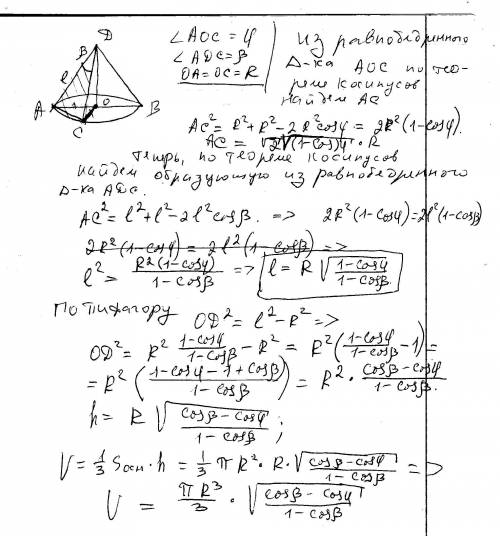 D
β
l
A
O
B
C
∠AOC = φ
∠ADC = β
OA = OC = R
Из равнобедренного
Δ-ка AOC по тео-
реме косинусов
найдем AC
AC² = R² + R² - 2R²cosφ = 2R²(1-cosφ).
AC = √2(1-cosφ) · R
Теперь, по теореме косинусов
найдем образующую из равнобедренного
Δ-ка ADC.
AC² = l² + l² - 2l²cosβ. => 2R²(1-cosφ) = 2l²(1-cosβ)
2R²(1-cosφ) = 2l²(1-cosβ) =>
l² = R²(1-cosφ)/(1-cosβ) => l = R√((1-cosφ)/(1-cosβ))
По Пифагору OD² = l² - R² =>
OD² = R² (1-cosφ)/(1-cosβ) - R² = R²((1-cosφ)/(1-cosβ) - 1) =
= R²((1-cosφ-1+cosβ)/(1-cosβ)) = R² · (cosβ-cosφ)/(1-cosβ).
h = R√((cosβ-cosφ)/(1-cosβ)) ;
V = 1/3 Sосн · h = 1/3 πR² · R · √((cosβ-cosφ)/(1-cosβ)) =>
V = πR³/3 · √((cosβ-cosφ)/(1-cosβ))